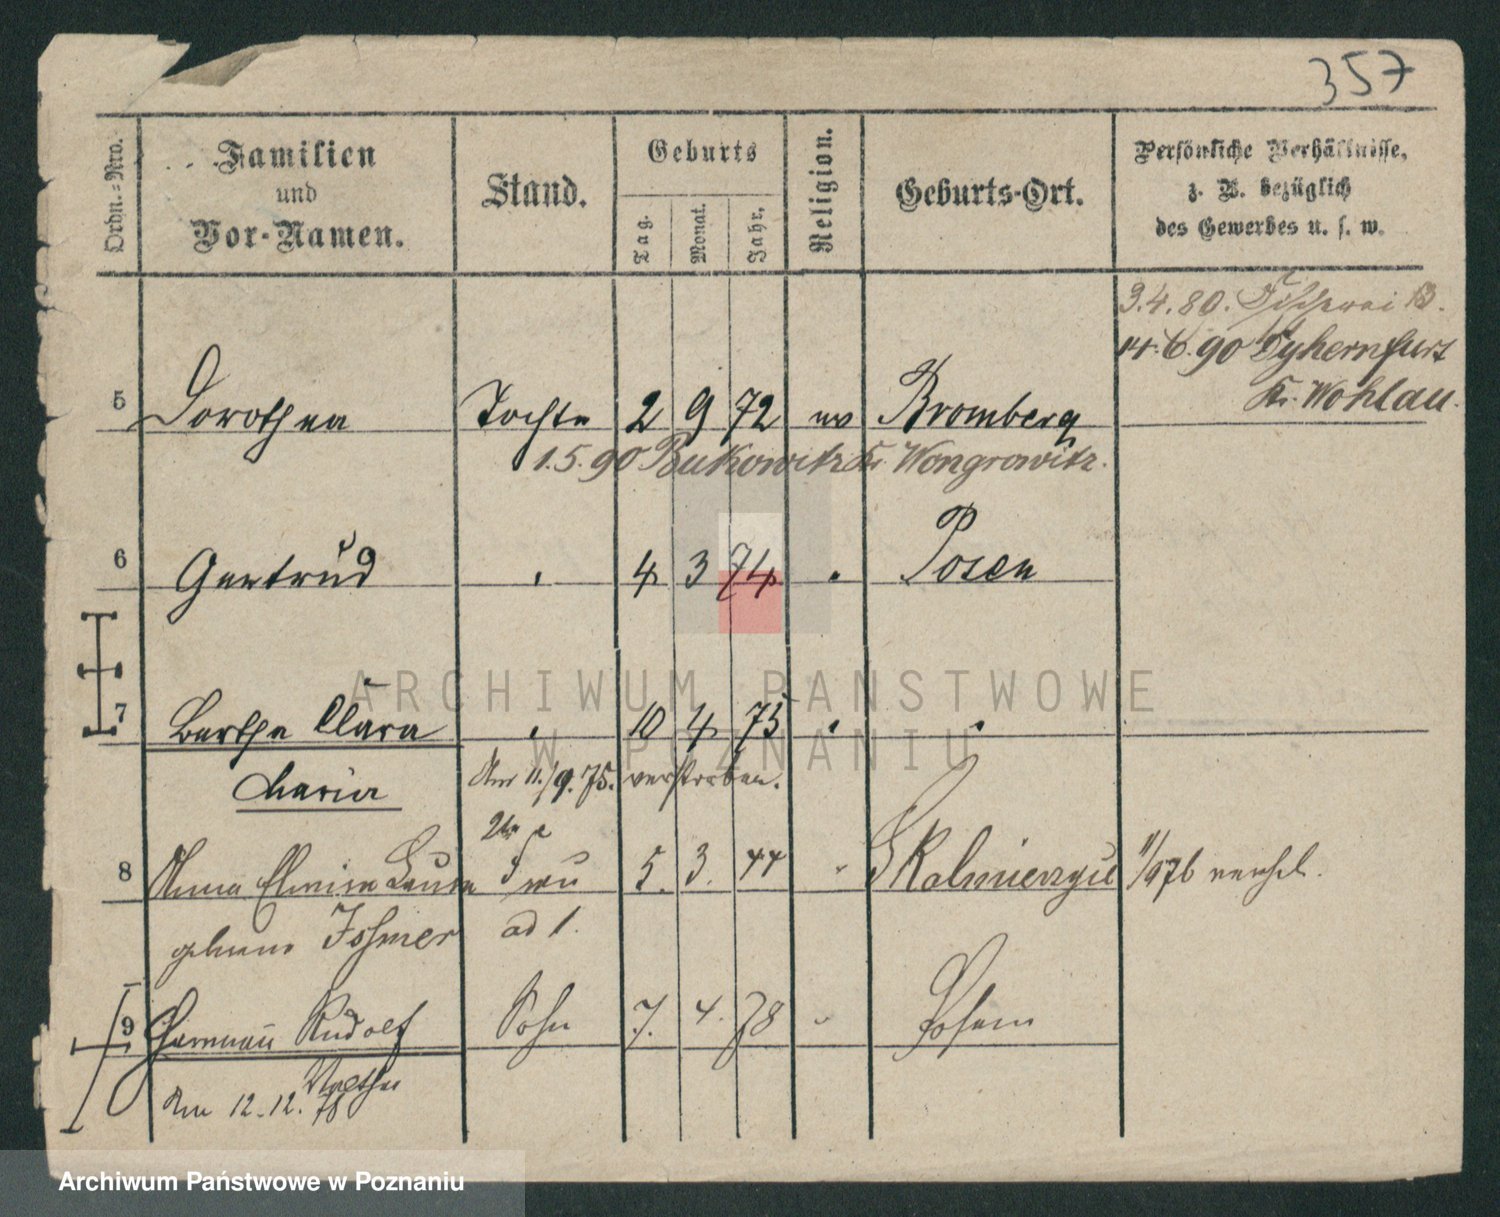 357
Ordn.-Nro.
Familien
und
Vor-Namen.
Stand.
Geburts
Tag.
Monat.
Jahr.
Religion.
Geburts-Ort.
Persönliche Verhältnisse,
z. B. bezüglich
des Gewerbes u. s. w.
3.4.80. Fischerei 13.
14.6.90 Dyhernfurt
Kr. Wohlau.
5 Dorothea Tochter 2 9 72 ev Bromberg
1.5.90 Bukowitz Kr. Wongrowitz.
6 Gertrud " 4 3 74 " Posen
7 Bertha Clara " 10 4 75 " "
Maria Am 11./9.75. verstorben.
2te
8 Anna Elwine Laura Frau 5. 3. 44 " 1/976 verehel.
geborene Ischmer ad 1.
9 Hermann Rudolf Sohn 7. 4. 78 " Posen
Walther
Am 12.12.78
ARCHIWUM PAŃSTWOWE
W POZNANIU
Archiwum Państwowe w Poznaniu